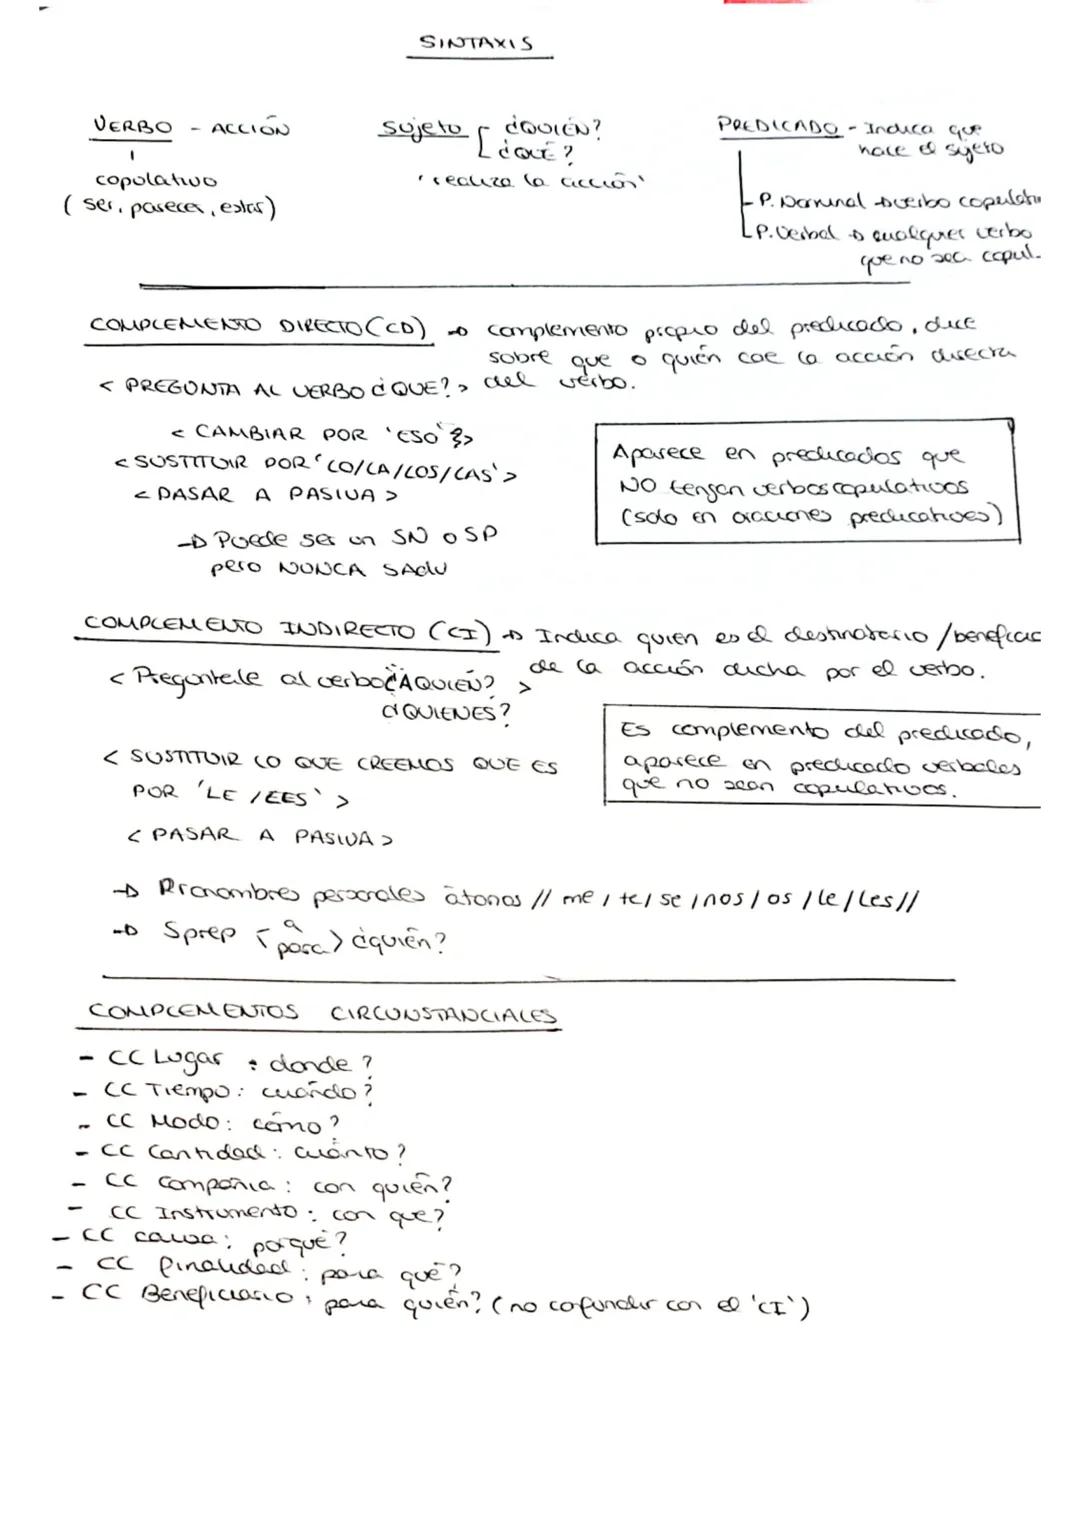 SINTAXIS
VERBO - ACCIÓN
copolativo
(ser, parecer, estar)
Sujeto ¿QUIÉN?
¿QUÉ?
'realiza la acción'
PREDICADO - Indica que
hace el sujeto
P. Nominal → verbo copulativ
P. Verbal → cualquier verbo
que no sea copul.
COMPLEMENTO DIRECTO (CD) → complemento propio del predicado, dice
sobre que o quién cae la acción directa
del verbo.
< PREGUNTA AL VERBO ¿QUE? >
< CAMBIAR POR 'ESO' >
< SUSTITUIR POR 'LO/LA/LOS/LAS' >
< PASAR A PASIVA >
→ Puede ser un SN o SP
pero NUNCA SAdv
Aparece en predicados que
NO tengan verbos copulativos
(solo en oraciones predicativas)
COMPLEMENTO INDIRECTO (CI) → Indica quien es el destinatario / beneficiac
de la acción dicha por el verbo.
< Pregúntele al verbo ¿A QUIÉN? >
¿QUIENES?
< SUSTITUIR LO QUE CREEMOS QUE ES
POR 'LE / LES' >
< PASAR A PASIVA >
Es complemento del predicado,
aparece en predicado verbales
que no sean copulativos.
→ Pronombres personales átonos // me / te / se / nos / os / le / les //
→ Sprep < a
para > ¿quién?
COMPLEMENTOS CIRCUNSTANCIALES
- CC Lugar : donde?
- CC Tiempo: cuándo?
- CC Modo: cómo?
- CC Cantidad: cuánto?
- CC Compañia: con quién?
- CC Instrumento: con que?
- CC causa: porqué?
- CC finalidad: para qué?
- CC Beneficiario: para quién? (no cofundir con el 'CI')